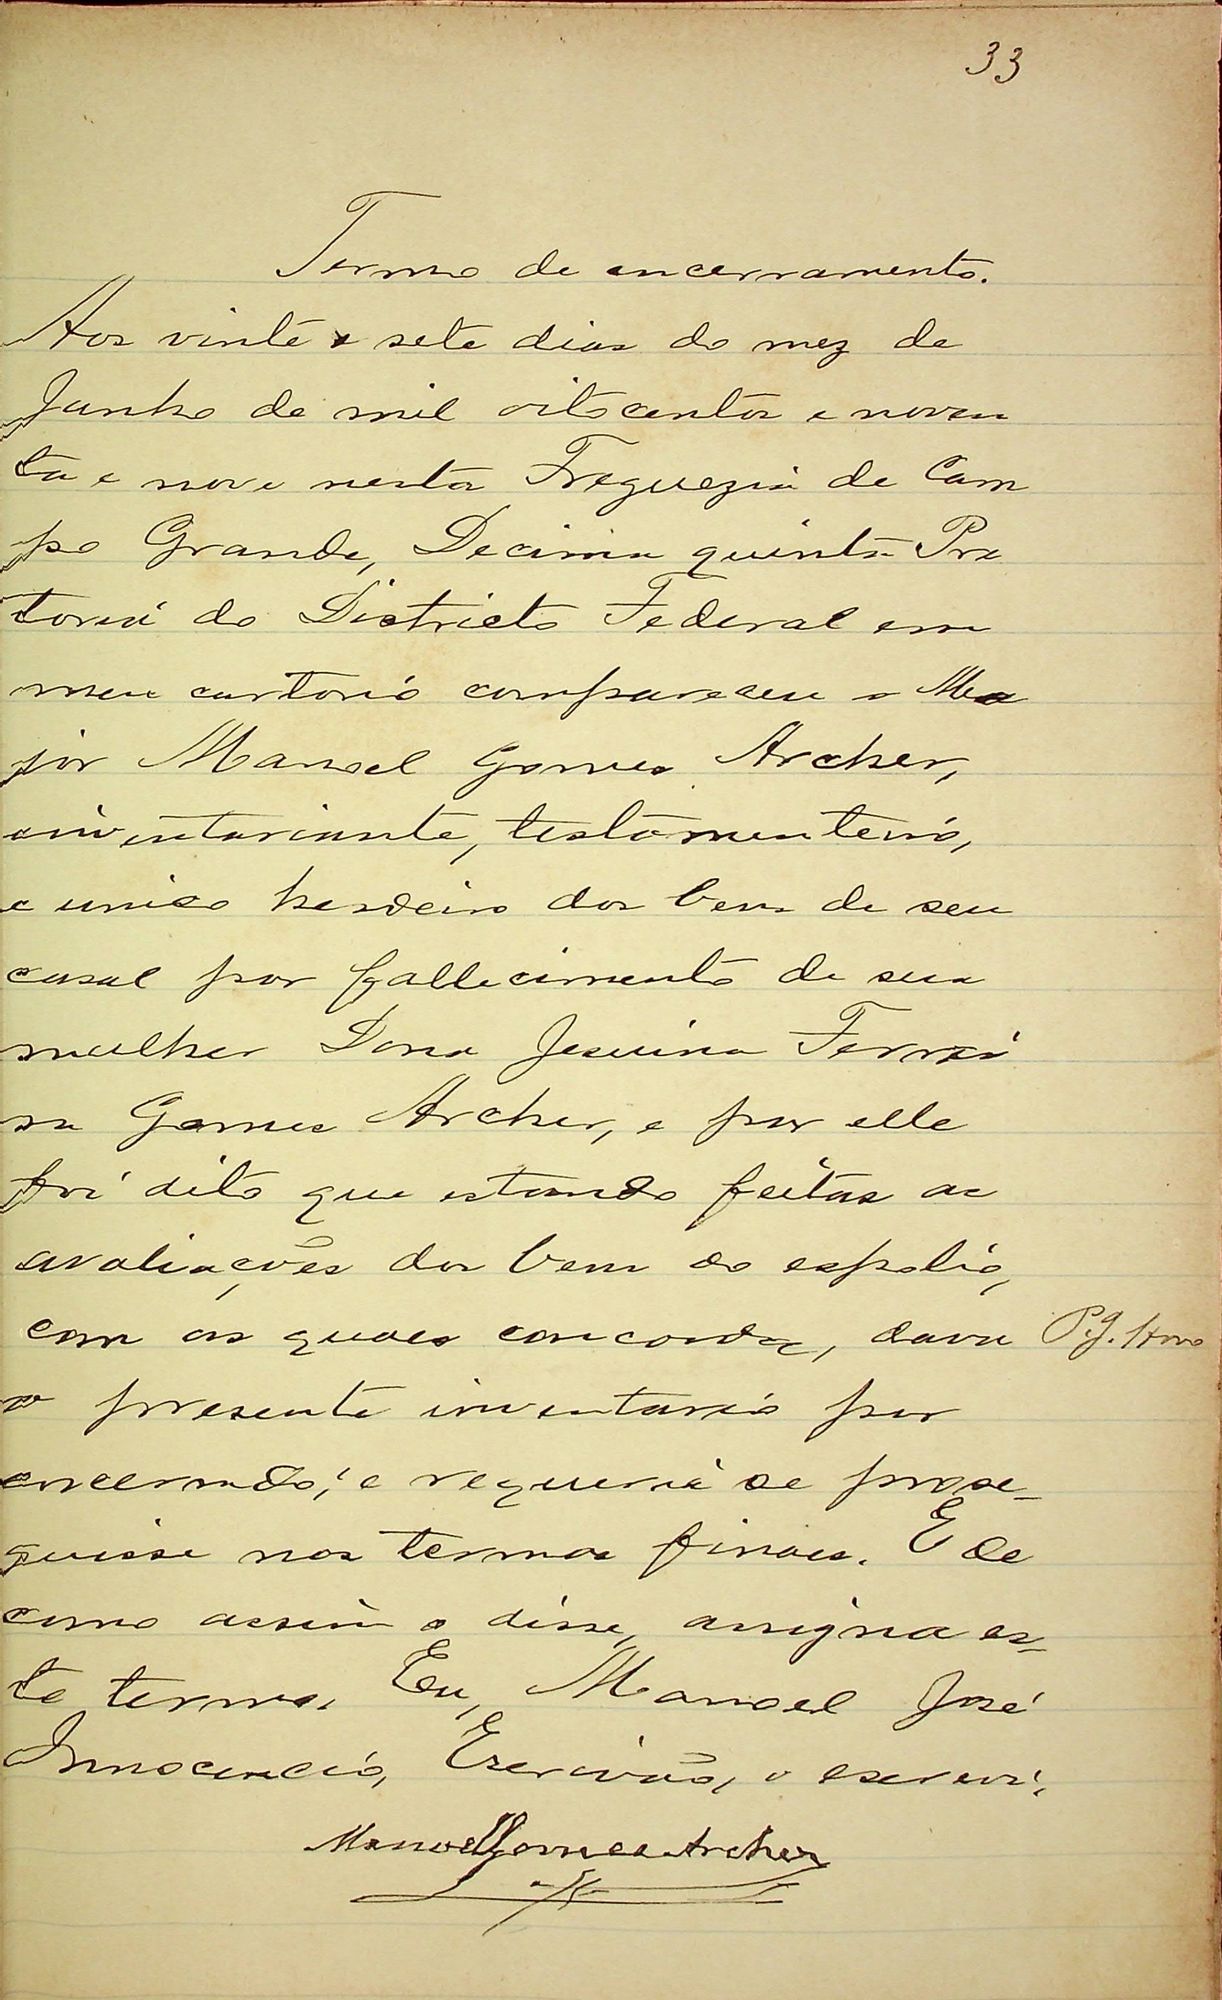 33
Termo de encerramento.
Aos vinte e sete dias do mez de
Junho de mil oitocentos e noven
ta e nove nesta Freguezia de Cam
po Grande, Decima quinta Pre
toria do Districto Federal em
meu cartorio compareceu o Ma
jor Manoel Gomes Archer,
inventariante, testamenteiro,
e unico herdeiro dos bens de seu
casal por fallecimento de sua
mulher Dona Jesuina Ferrei
ra Gomes Archer, e por elle
foi dito que estando feitas as
avaliações dos bens do espolio,
com as quaes concorda, dava
o presente inventario por
encerrado; e requeria se prose-
guisse nos termos finaes. E de
como assim o disse, assigna es-
te termo. Eu, Manoel José
Innocencio, Escrivão, o escrevi.
Manoel Gomes Archer